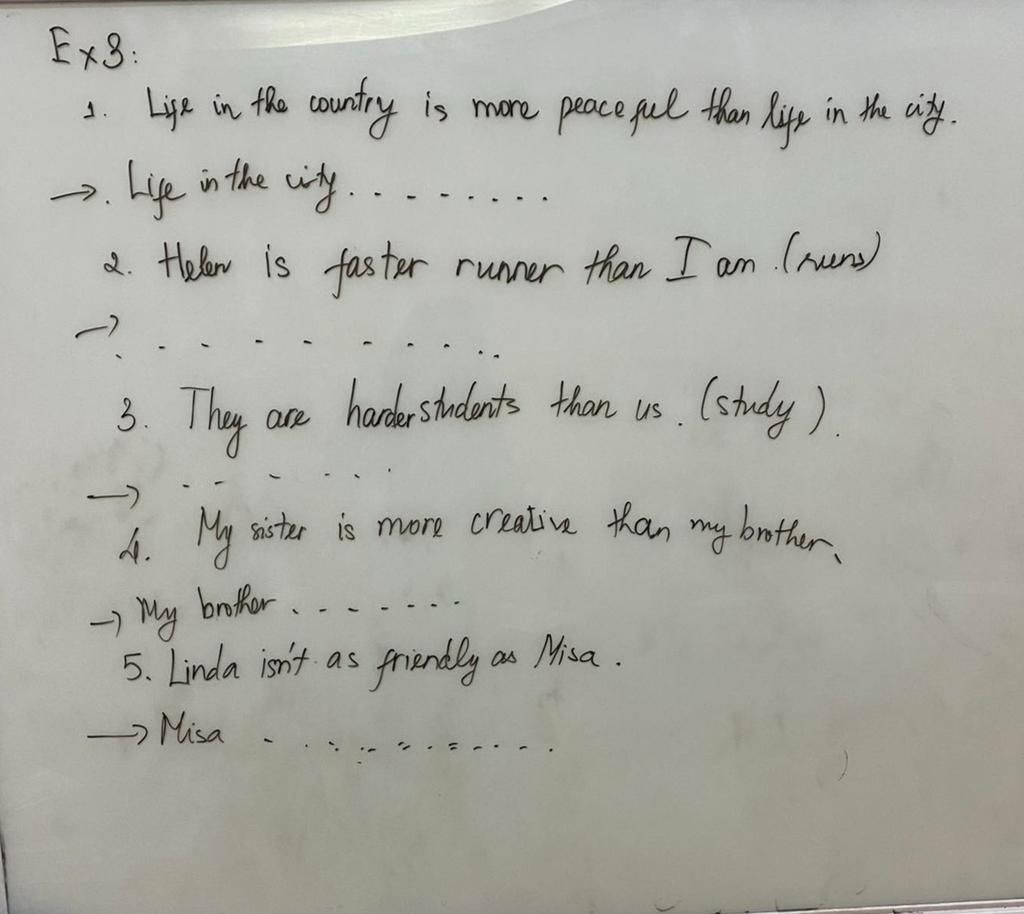 Ex3:
1. Life in the country is more peaceful than life in the city.
→. Life in the city. . . . . . . .
2. Helen is faster runner than I am. (runs)
→ . . . . . . . . . . .
3. They are harder students than us. (study).
→ . . . . . .
4. My sister is more creative than my brother.
→ My brother . . . . . . .
5. Linda isn't as friendly as Misa.
→ Misa . . . . . . . . . . .